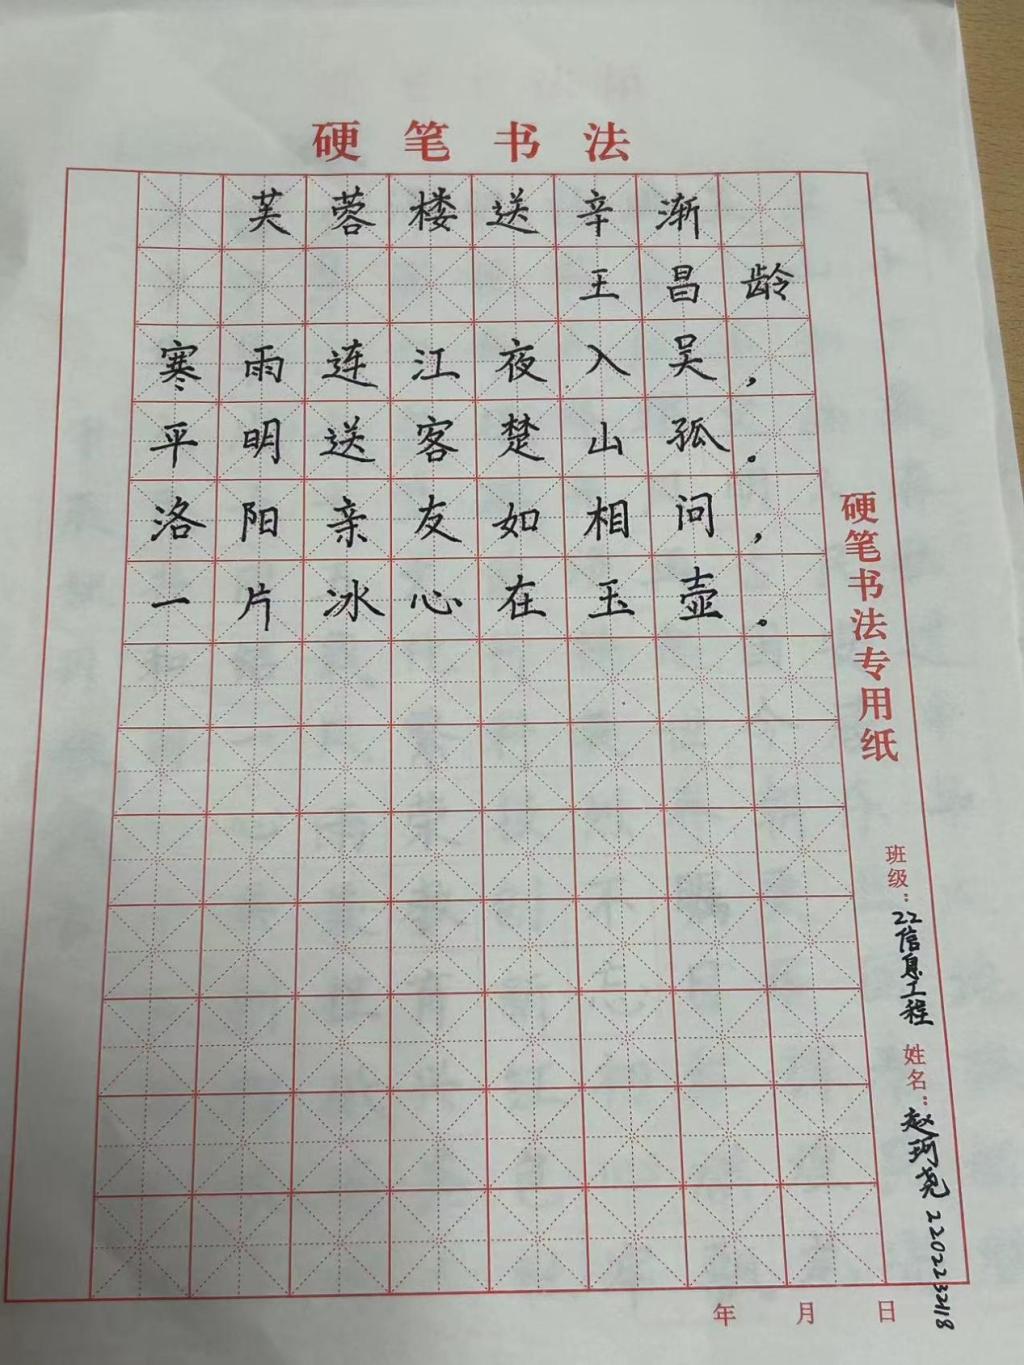 硬笔书法
芙蓉楼送辛渐
王昌龄
寒雨连江夜入吴，
平明送客楚山孤。
洛阳亲友如相问，
一片冰心在玉壶。
硬笔书法专用纸
班级：22信息工程 姓名：赵珂尧 2202232418
年 月 日